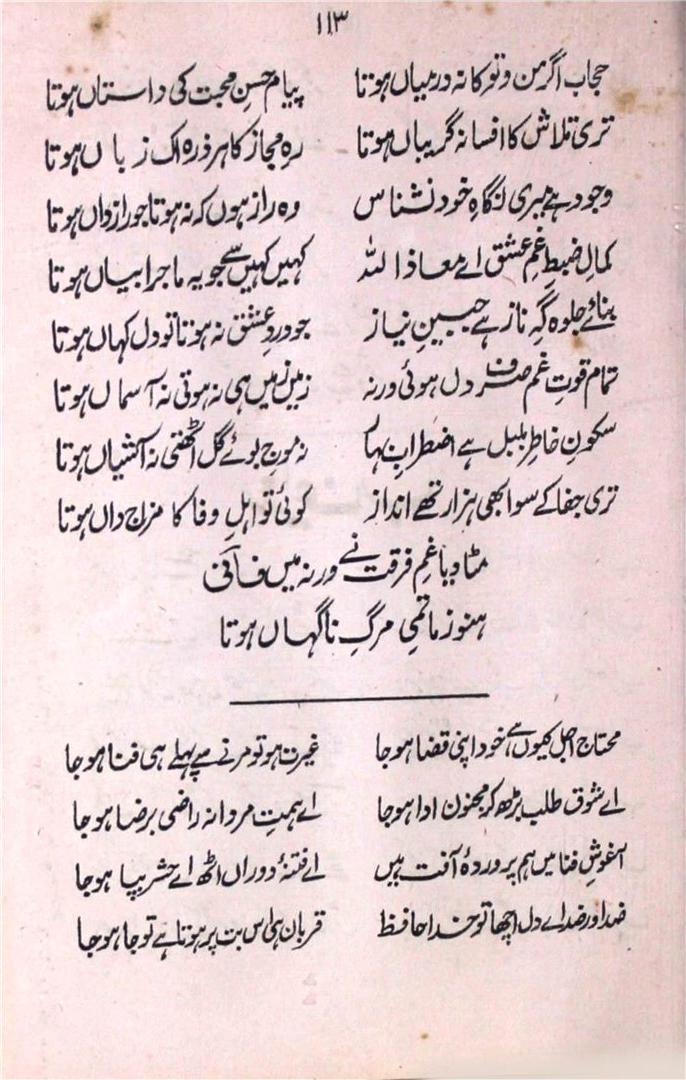 ۱۱۳
حجاب اگر من و تو کا نہ درمیاں ہوتا پیام حسنِ محبت کی داستاں ہوتا
تری تلاش کا افسانہ گریباں ہوتا رہِ مجاز کا ہر ذرہ اک زباں ہوتا
وجود ہے میری نگاہِ خود نشناس وہ راز ہوں کہ نہ ہوتا جو رازداں ہوتا
کمالِ ضبطِ غمِ عشق اے معاذ اللہ کہیں کہیں سے جو یہ ماجرا بیاں ہوتا
بنائے جلوہ گہِ ناز ہے جبینِ نیاز جو دردِ عشق نہ ہوتا تو دل کہاں ہوتا
تمام قوتِ غم صرفِ دل ہوئی ورنہ زمیں زمیں ہی نہ ہوتی نہ آسماں ہوتا
سکونِ خاطرِ بلبل ہے اضطرابِ بہار نہ موجِ بوئے گل اٹھتی نہ آشیاں ہوتا
تری جفا کے سوا بھی ہزار تھے انداز کوئی تو اہلِ وفا کا مزاج داں ہوتا
مٹا دیا غمِ فرقت نے ورنہ میں فانی
ہنوز ماتمیِ مرگِ ناگہاں ہوتا
محتاجِ اجل کیوں ہے، خود اپنی قضا ہو جا غیرت ہو تو مرنے سے پہلے ہی فنا ہو جا
اے شوقِ طلب بڑھ کر مجنونِ ادا ہو جا اے ہمتِ مردانہ راضی برضا ہو جا
آغوشِ فنا میں ہم پروردۂ آفت ہیں اے فتنۂ دوراں اٹھ اے حشر بپا ہو جا
ضد اور ضد اے دل اچھا تو خدا حافظ قربان ہی اس بت پر ہوتا ہے تو جا ہو جا